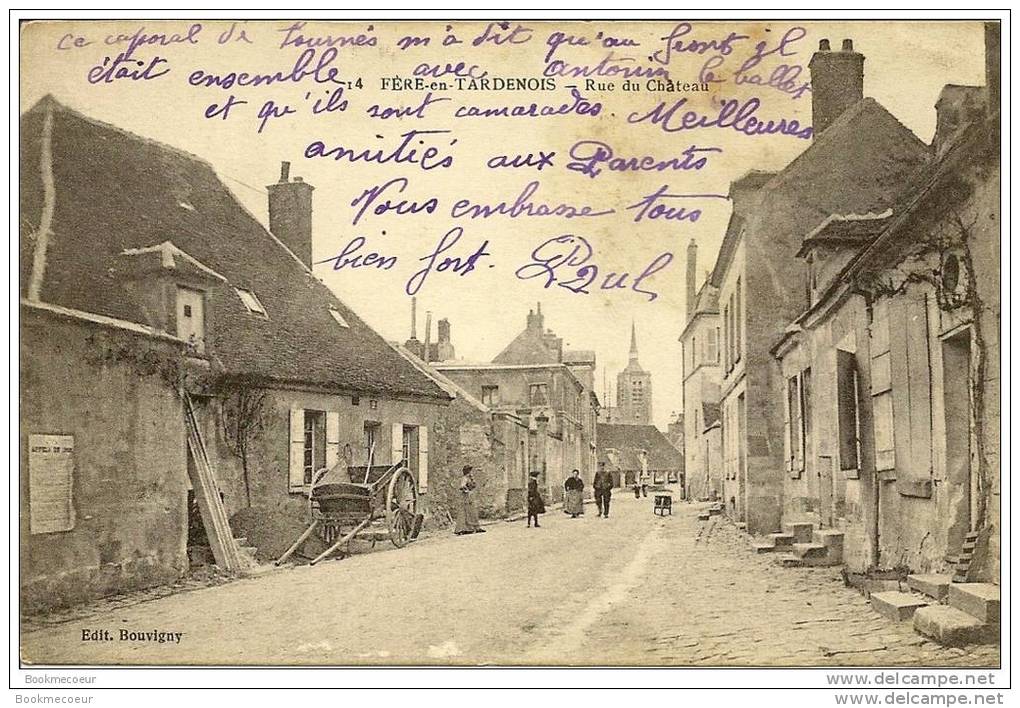 ce caporal de Tournés m'a dit qu'au front il
était ensemble avec antonin le ballet
14 FÈRE-en-TARDENOIS - Rue du Château
et qu'ils sont camarades. Meilleures
amitiés aux Parents
Vous embrasse tous
bien fort. Paul
APPELS
Edit. Bouvigny
Bookmecoeur
www.delcampe.net
Bookmecoeur
www.delcampe.net